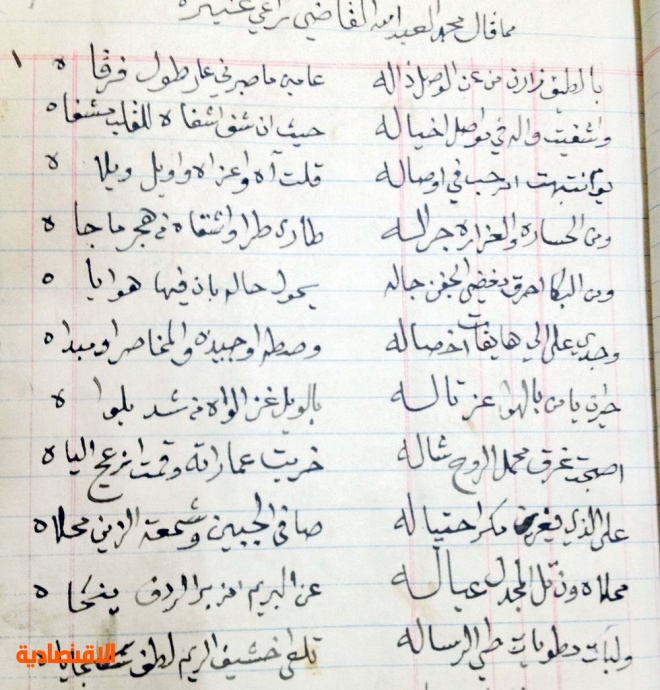 مما قال محمد العبدالله القاضي راعي عنيزه
١
بالطيف زارن من عن الوصل ذاله عامين ما صبرني على طول فرقا ه
واشفيت واله في تواصل اخياله حيث ان شفى اشفاه للقلب مشفاه
يوم انتبهت ارحب في اوصاله قلت آه واعزاه واويل ويلا ه
ومن الحساره والعزاره جراله طاري طرا واشقاه في هجر ما جا ه
ومن البكا احرق دغيض الجفن جاله يحول حاله بان فيها هوايا ه
وجدي على اللي هايفات اخصاله وصطه اوجيده والمخاصر اومبداه
حزن يا من بالهوا عز تاله بالويل غز الواه في شد بلوا ه
اصبحت غرق محمل الروح شاله خربت عماراته وقمت انزعج الياه
على الذي بغرته مكر احتياله صافي الجبين وشمعة الزين محلاه
محلاه ون تل المجدل عباله عن البريم امزبر الردف ينحا ه
ولبات مطويات طي الرساله تلقى خشيف الريم لطف
الاقتصادية